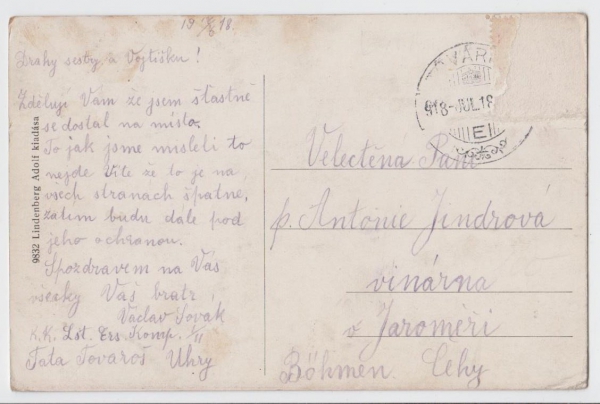 19 18/8 18.
Drahy sestry a Vojtíšku!
Zděluji Vám že jsem štastně
se dostal na místo.
To jak jsme misleli to
nejde Víte že to je na
vsech stranách špatne,
zatim budu dále pod
jeho ochranou.
Spozdravem na Vás
všecky Váš bratr
Václav Novák
K.K. Lst. Ers. Komp. 2/II
Tata Tovaroš Uhry
9832 Lindenberg Adolf kiadása
VÁR
918-JUL.18
E
Velectěna Paní
p. Antonie Jindrová
vinárna
v Jaroměři
Böhmen. Čehy